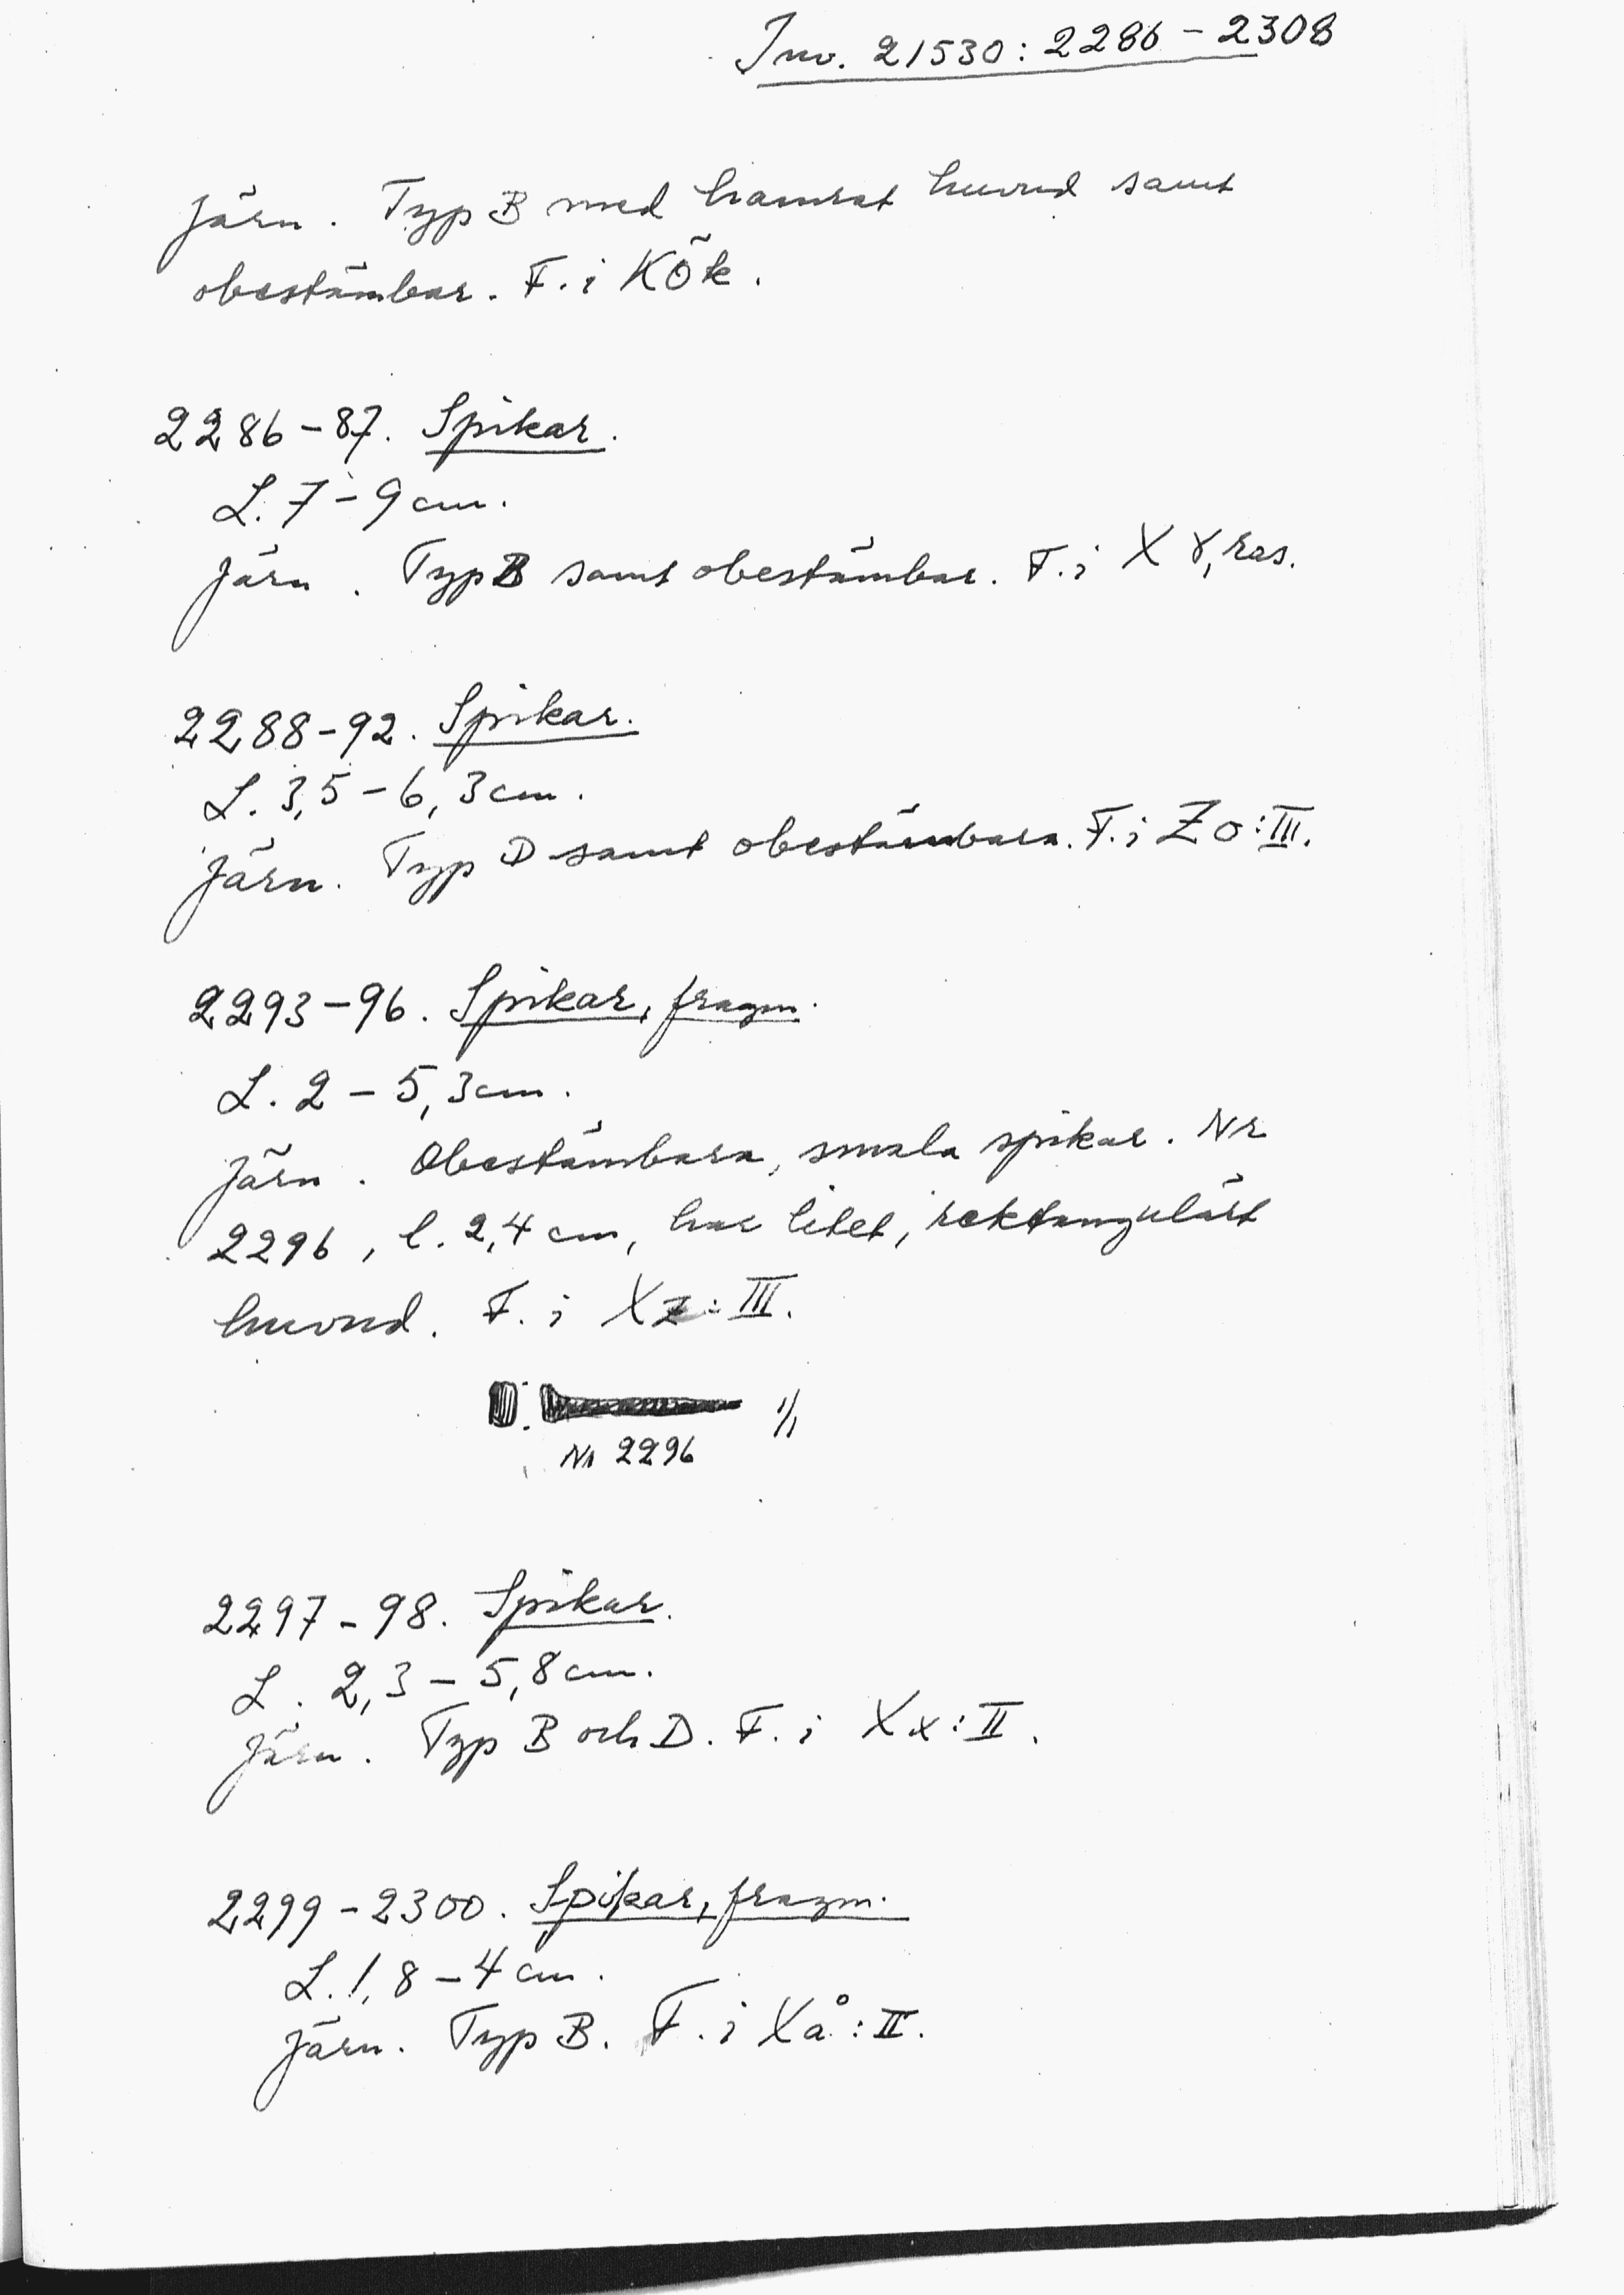 Inv. 21530: 2286-2308
Järn. Typ B med hamrat huvud samt
obestämbar. F. i KÖk.
2286-87. Spikar.
L. 7-9 cm.
Järn. Typ B samt obestämbar. F. i X γ, ras.
2288-92. Spikar.
L. 3,5-6,3 cm.
Järn. Typ D samt obestämbara. F. i Zo:III.
2293-96. Spikar, fragm.
L. 2-5,3 cm.
Järn. Obestämbara, smala spikar. Nr
2296, l. 2,4 cm, har litet, rektangulärt
huvud. F. i Xz:III.
1/1
Nr 2296
2297-98. Spikar.
L. 2,3-5,8 cm.
Järn. Typ B och D. F. i Xx:II.
2299-2300. Spikar, fragm.
L. 1,8-4 cm.
Järn. Typ B. F. i Xå:II.